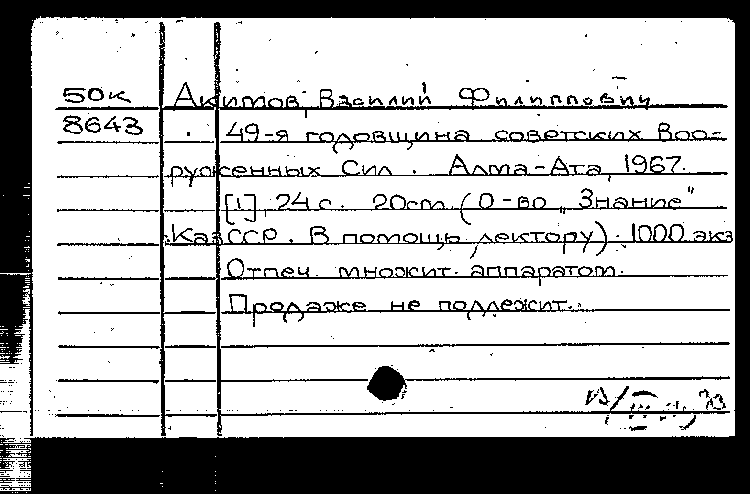 50к Акимов, Василий Филиппович
8643 . 49-я годовщина советских Воо-
руженных Сил. Алма-Ата, 1967.
[1], 24 с. 20см. (О-во „Знание"
КазССР. В помощь лектору). 1000 экз
Отпеч. множит. аппаратом.
Продаже не подлежит.